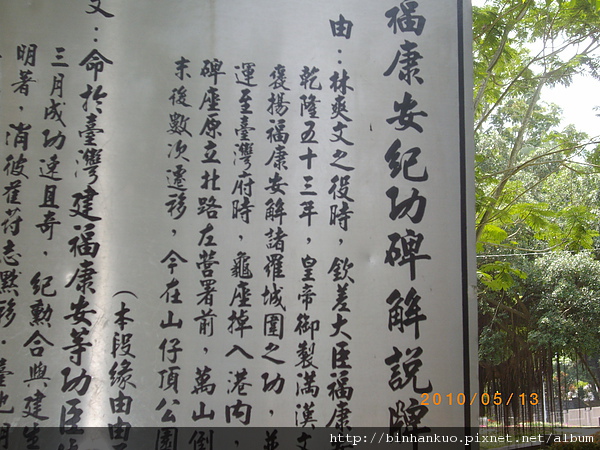 福康安紀功碑解說牌
由：林爽文之役時，欽差大臣福康
乾隆五十三年，皇帝御製滿漢文
褒揚福康安解諸羅城圍之功，並
運至臺灣府時，龜座掉入港內，
碑座原立北路左營署前，萬山倒
末後數次遷移，今在山仔頂公園
（本段緣由由
文：命於臺灣建福康安等功臣
三月成功速且奇，紀勳合與建生
明著，消彼萑苻志默移。臺地
2010/05/13
http://binhankuo.pixnet.net/album